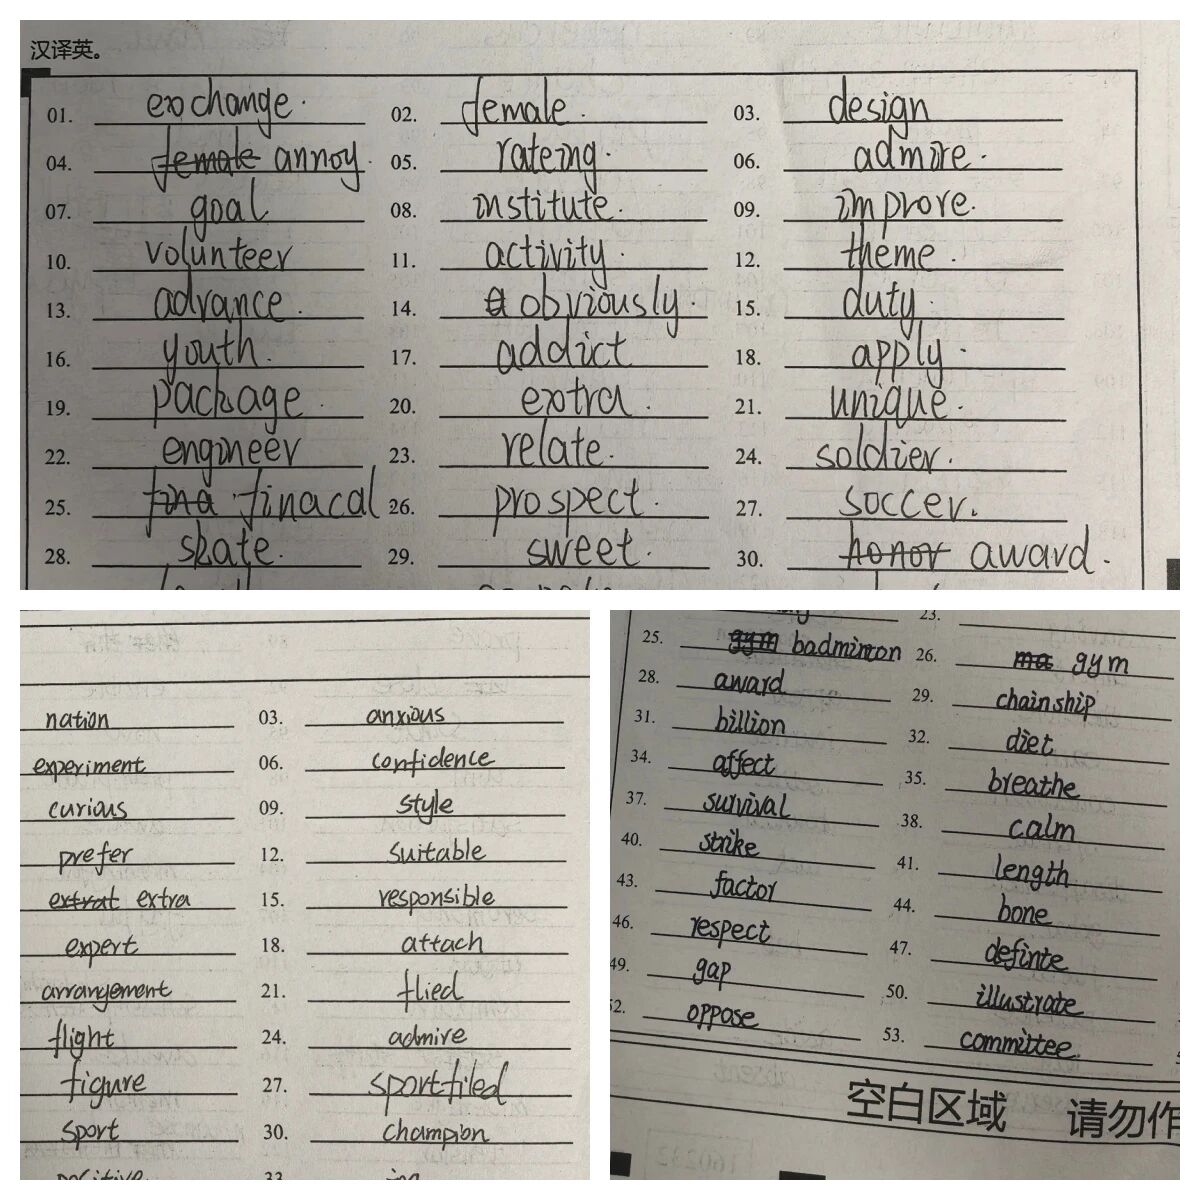 汉译英。
01. exchange. 02. female. 03. design
04. female annoy. 05. rateing. 06. admire.
07. goal 08. institute. 09. improve.
10. volunteer 11. activity. 12. theme.
13. advance. 14. obviously. 15. duty.
16. youth. 17. addict 18. apply.
19. package. 20. extra. 21. unique.
22. engineer 23. relate. 24. soldier.
25. fina finacal 26. prospect. 27. soccer.
28. skate. 29. sweet. 30. honor award.
nation 03. anxious
experiment 06. confidence
curious 09. style
prefer 12. suitable
extrat extra 15. responsible
expert 18. attach
arrangement 21. flied
flight 24. admire
figure 27. sportfiled
sport 30. champion
positive 33.
23.
25. gym badminton 26. ma gym
28. award 29. chainship
31. billion 32. diet
34. affect 35. breathe
37. survival 38. calm
40. strike 41. length
43. factor 44. bone
46. respect 47. definte
49. gap 50. illustrate
52. oppose 53. committee.
空白区域 请勿作